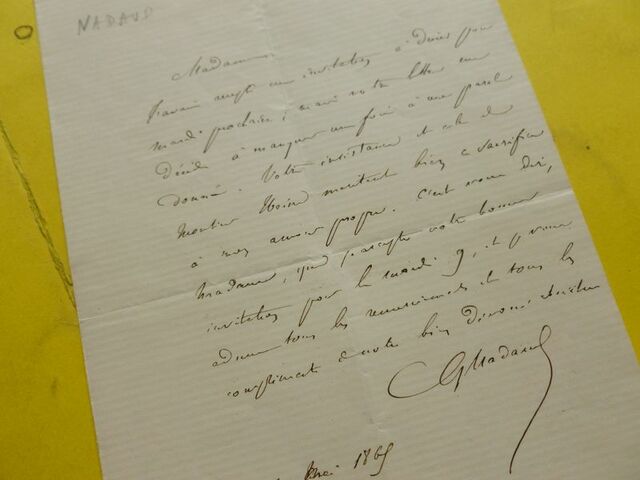 NADAUD
Madame,
J'avais accepté une invitation à dîner pour
mardi prochain; mais votre lettre me
décide à manquer une fois à ma parole
donnée. Votre insistance et celle de
Monsieur méritent bien ce sacrifice
à mon amour propre. C'est vous dire,
Madame, que j'accepte votre bonne
invitation pour le mardi 9, et je vous
adresse tous les remerciements et tous les
compliments de votre bien dévoué serviteur
G Nadaud
Mai 1865